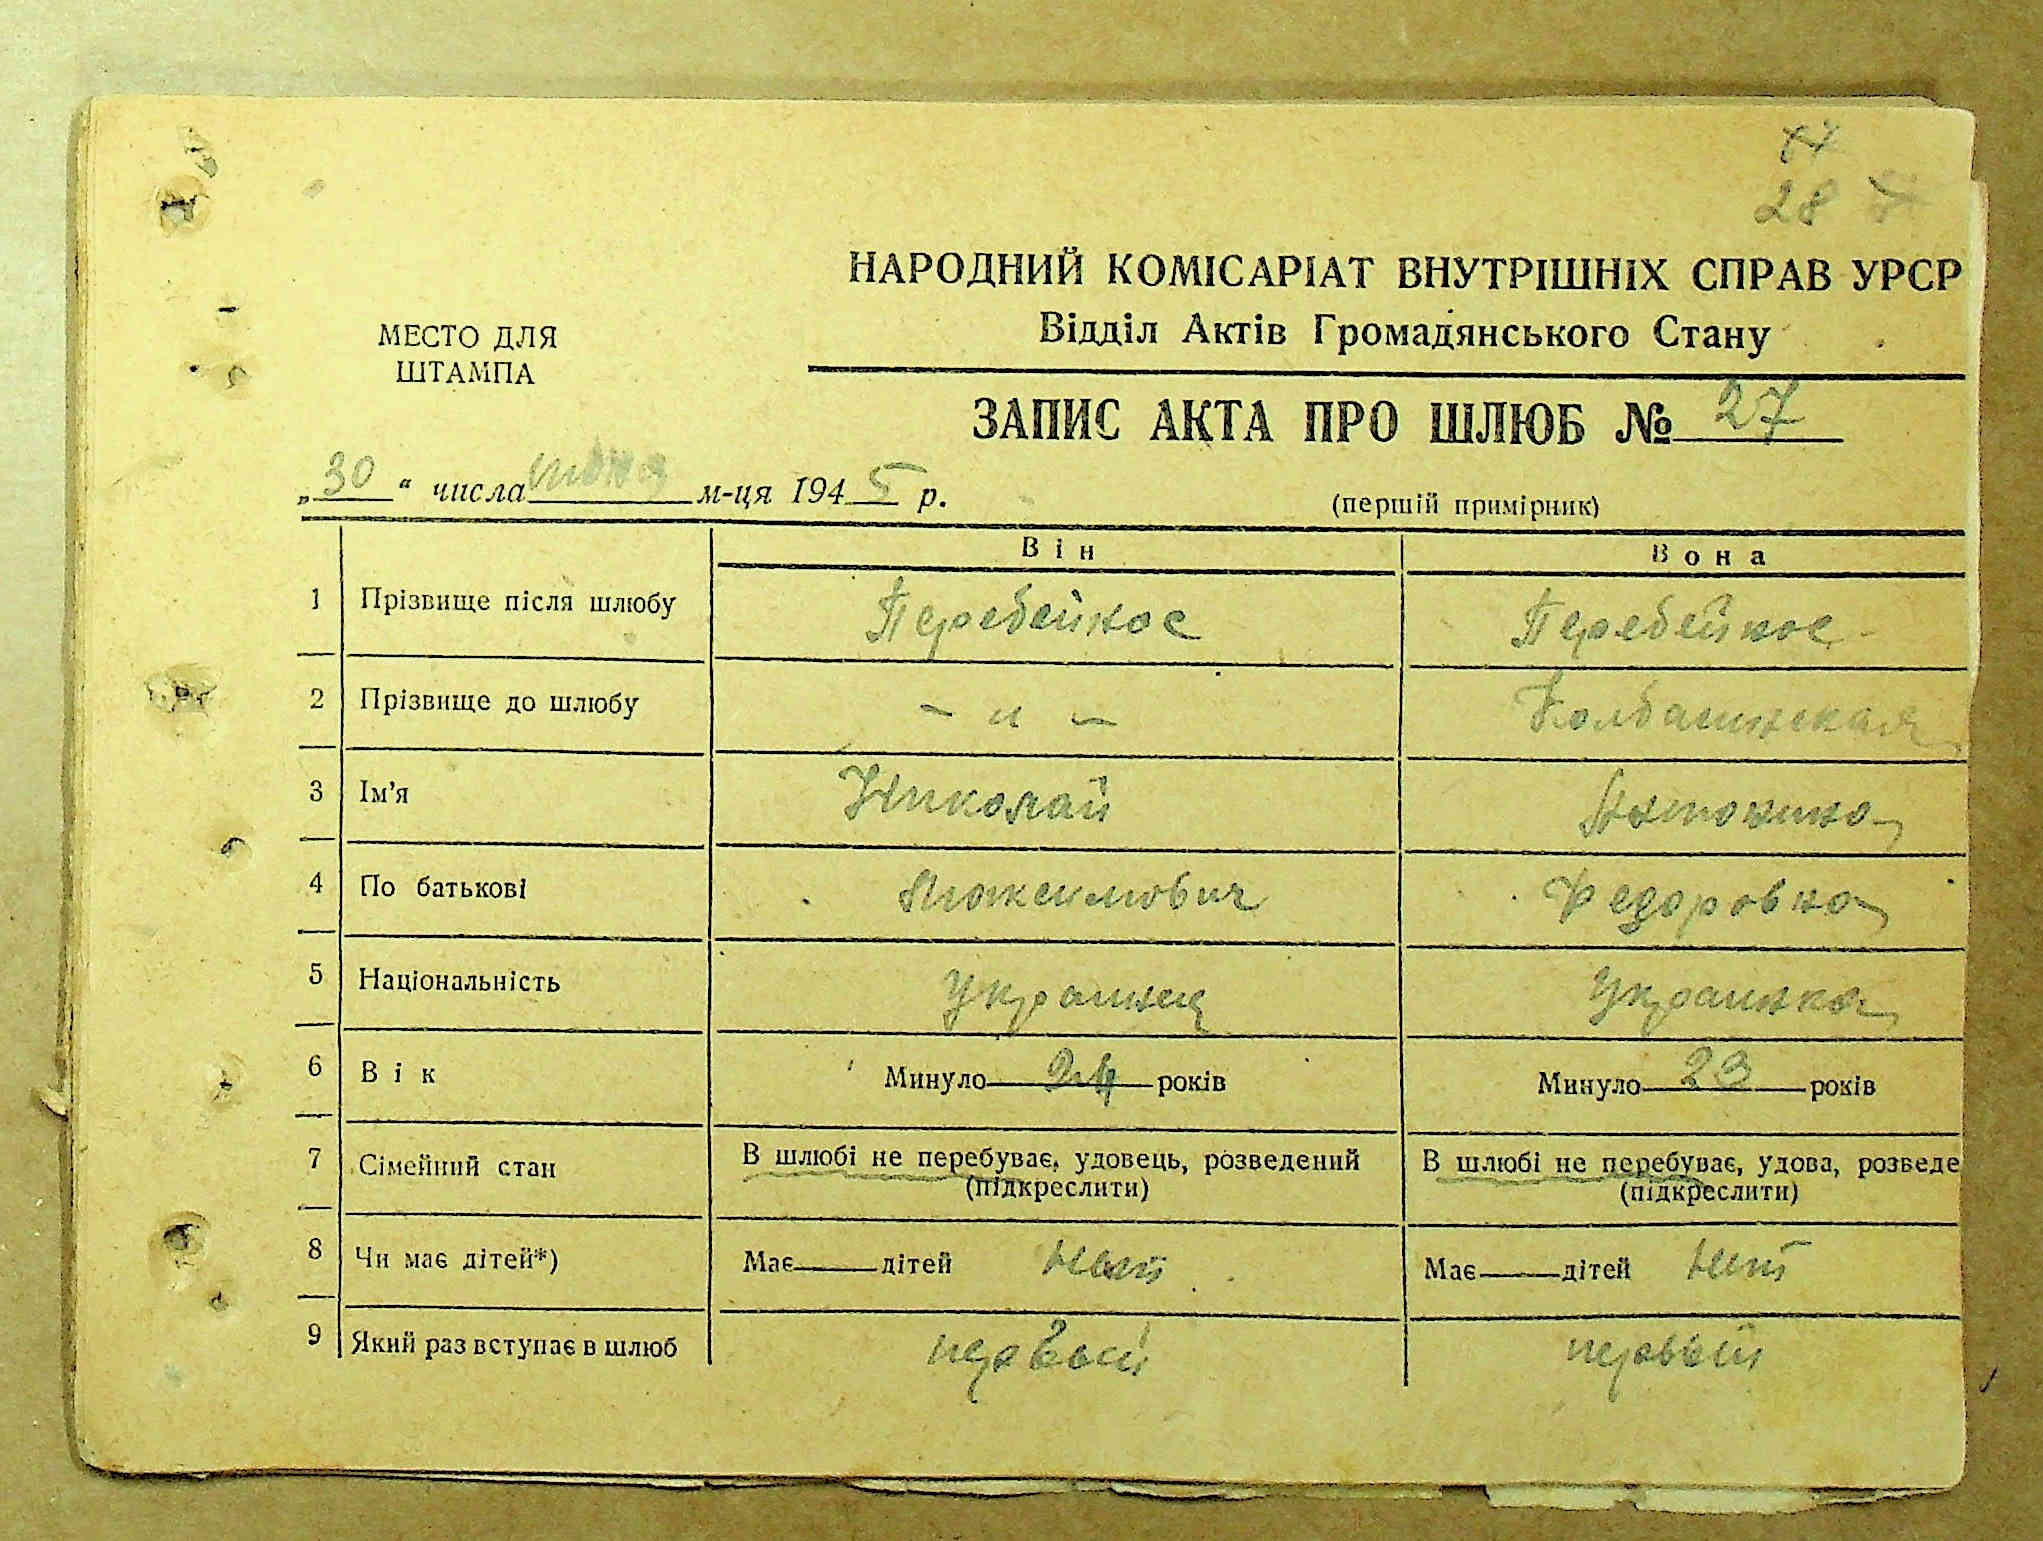 28
НАРОДНИЙ КОМІСАРІАТ ВНУТРІШНІХ СПРАВ УРСР
Відділ Актів Громадянського Стану
МЕСТО ДЛЯ
ШТАМПА
ЗАПИС АКТА ПРО ШЛЮБ № 27
„30“ числа июня м-ця 1945 р.
(перший примірник)
Він Вона
1 Прізвище після шлюбу Перебейнос Перебейнос
2 Прізвище до шлюбу – и – Колбасинская
3 Ім’я Николай Антонина
4 По батькові Максимович Федоровна
5 Національність Украинец Украинка
6 Вік Минуло 24 років Минуло 23 років
7 Сімейний стан В шлюбі не перебуває, удовець, розведений В шлюбі не перебуває, удова, розведе
(підкреслити) (підкреслити)
8 Чи має дітей*) Має дітей нет Має дітей нет
9 Який раз вступає в шлюб первый первый